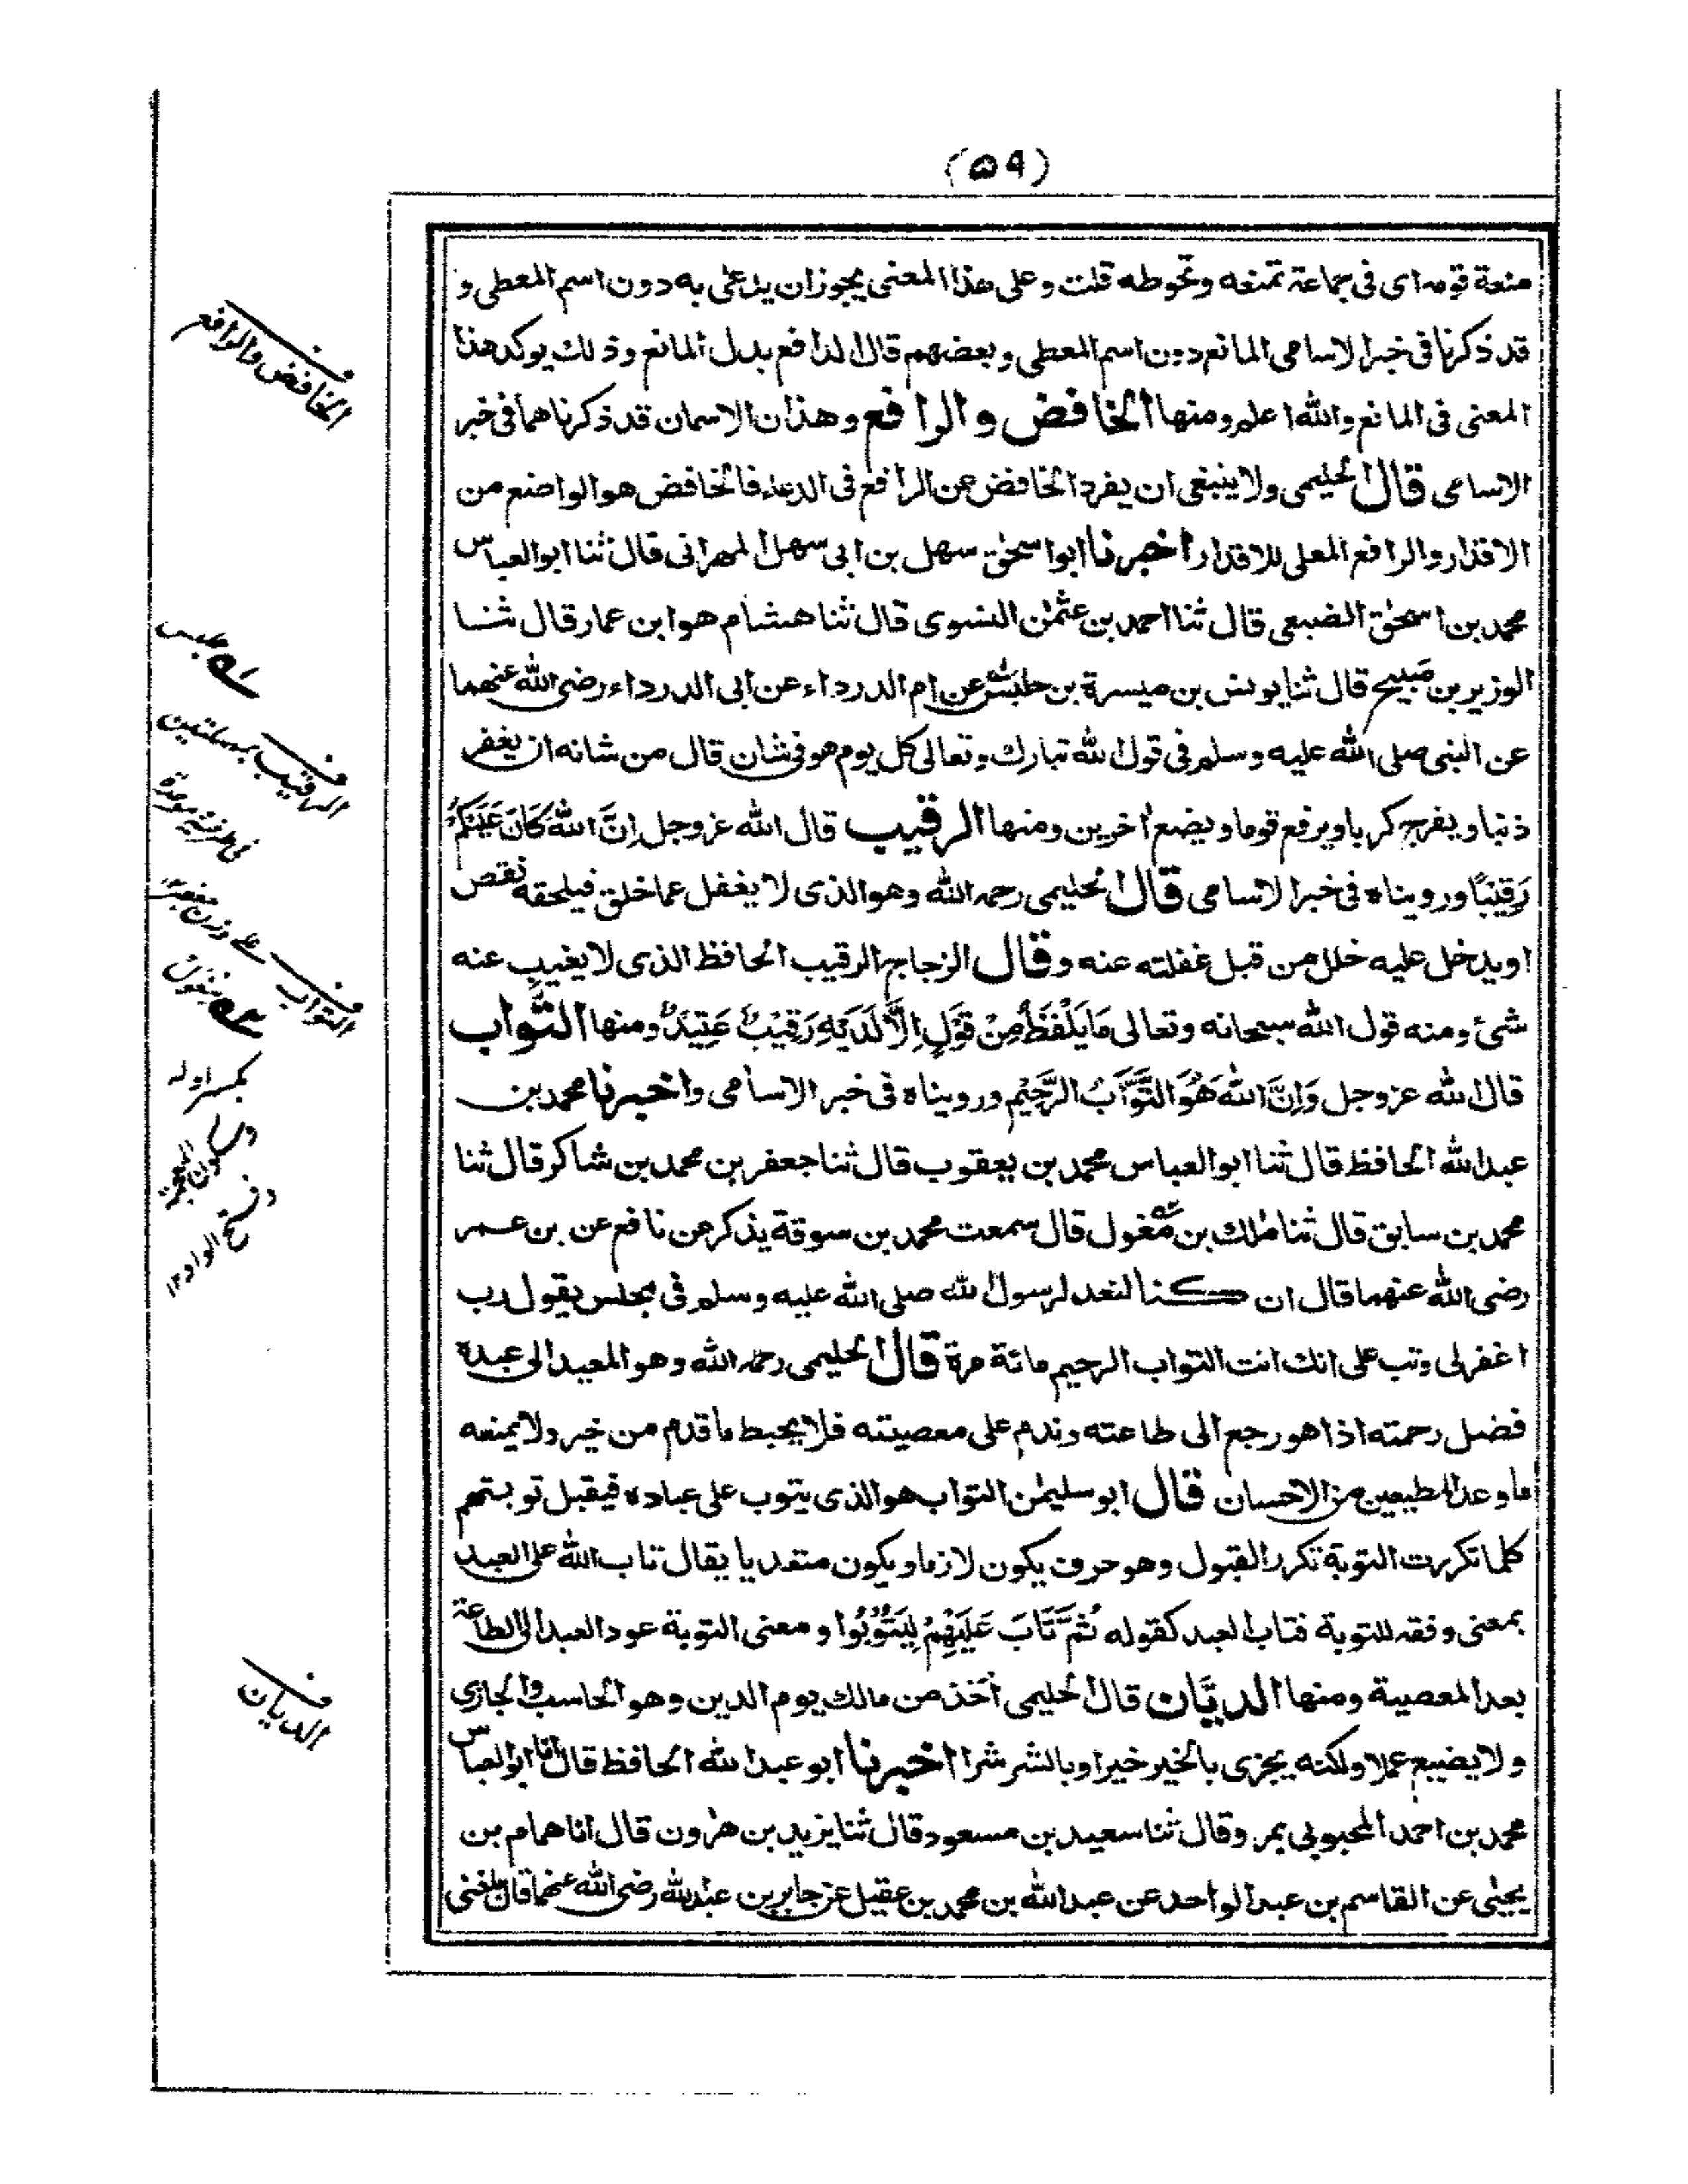 (۵۹)
منعة قومه اى فى جماعة تمنعه وتحوطه قلت وعلى هذا المعنى يجوز ان يدعى به دون اسم المعطى و
قد ذكرنا فى خبر الاسامى المانع دون اسم المعطى وبعضهم قال الدافع بدل المانع وذلك يوكد هذا
المعنى فى المانع والله اعلم ومنها الخافض والرافع وهذان الاسمان قد ذكرناهما فى خبر
الاسامى قال الحليمى ولا ينبغى ان يفرد الخافض عن الرافع فى الدعاء فالخافض هو الواضع من
الاقدار والرافع المعلى للاقدار اخبرنا ابو اسحٰق سهل بن ابى سهل المهرانى قال ثنا ابو العباس
محمد بن اسحٰق الضبعى قال ثنا احمد بن عثمٰن النسوى قال ثنا هشام هو ابن عمار قال ثنا
الوزير بن صَبيح قال ثنا يونس بن ميسرة بن حلبس عن ام الدرداء عن ابى الدرداء رضى الله عنهما
عن النبى صلى الله عليه وسلم فى قول الله تبارك وتعالى كل يوم هو فى شان قال من شانه ان يغفر
ذنبا ويفرج كربا ويرفع قوما ويضع اٰخرين ومنها الرقيب قال الله عزوجل اِنَّ اللهَ كَانَ عَلَيْكُمْ
رَقِيْبًا ورويناه فى خبر الاسامى قال الحليمى رحمه الله وهو الذى لا يغفل عما خلق فيلحقه نقص
او يدخل عليه خلل من قبل غفلته عنه وقال الزجاج الرقيب الحافظ الذى لا يغيب عنه
شئ ومنه قول الله سبحانه وتعالى مَا يَلْفَظُ مِنْ قَوْلٍ اِلَّا لَدَيْهِ رَقِيْبٌ عَتِيْدٌ ومنها التَّواب
قال الله عزوجل وَاِنَّ اللهَ هُوَ التَّوَّابُ الرَّحِيْم ورويناه فى خبر الاسامى واخبرنا محمد بن
عبد الله الحافظ قال ثنا ابو العباس محمد بن يعقوب قال ثنا جعفر بن محمد بن شاكر قال ثنا
محمد بن سابق قال ثنا مٰلك بن مِغول قال سمعت محمد بن سوقة يذكر عن نافع عن بن عمر
رضى الله عنهما قال ان كنا لنعد لرسول الله صلى الله عليه وسلم فى مجلس يقول رب
اغفر لى وتب على انك انت التواب الرحيم مائة مرة قال الحليمى رحمه الله وهو المعيد الى عبده
فضل رحمته اذا هو رجع الى طاعته وندم على معصيته فلا يحبط ما قدم من خير ولا يمنعه
ما وعد المطيعين من الاحسان قال ابو سليمٰن التواب هو الذى يتوب على عباده فيقبل توبتهم
كلما تكررت التوبة تكرر القبول وهو حرف يكون لازما ويكون متعديا يقال تاب الله على العبد
بمعنى وفقه للتوبة فتاب العبد كقوله ثُمَّ تَابَ عَلَيْهِمْ لِيَتُوْبُوا ومعنى التوبة عود العبد الى الطاعة
بعد المعصية ومنها الديَّان قال الحليمى اُخذ من مالك يوم الدين وهو الحاسب والمجازى
ولا يضيع عملا ولكنه يجزى بالخير خيرا وبالشر شرا اخبرنا ابو عبد الله الحافظ قال انا ابو العباس
محمد بن احمد المحبوبى بمرو قال ثنا سعيد بن مسعود قال ثنا يزيد بن هٰرون قال انا همام بن
يحيٰى عن القاسم بن عبد الواحد عن عبد الله بن محمد بن عقيل عن جابر بن عبد الله رضى الله عنهما قال بلغنى
الخافض والرافع
حلبس
الرقيب بمهملتين
التواب
على وزن
مغول
بكسر اوله
وسكون المعجمة
وفتح الواو ۱۲
الديان